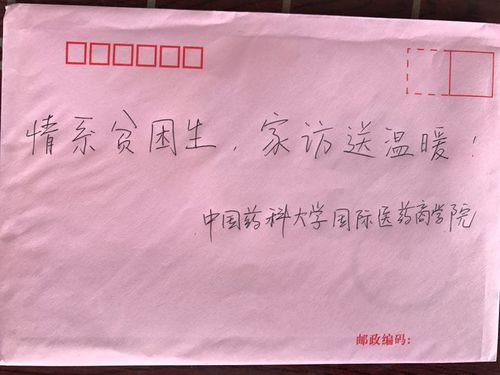 情系贫困生，家访送温暖！
中国药科大学国际医药商学院
邮政编码：